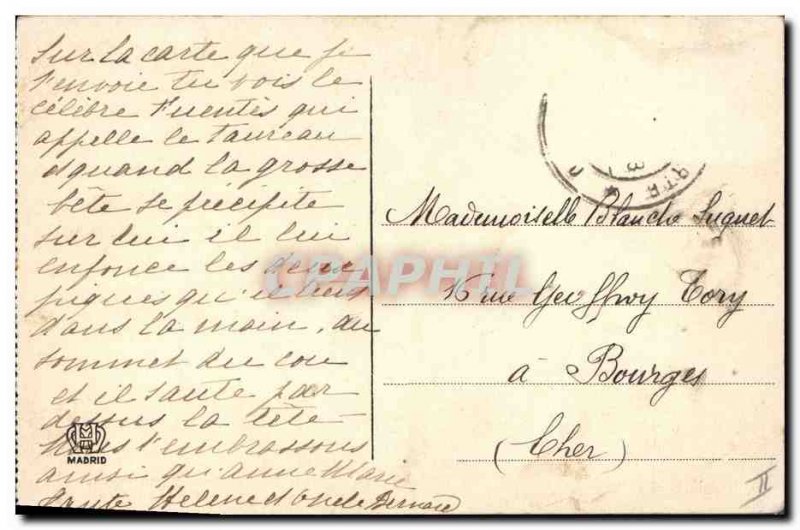 Sur la carte que je
t'envoie tu vois le
célèbre Fuentès qui
appelle le taureau
et quand la grosse
bête se précipite
sur lui il lui
enfonce les deux
piques qu'il tient
dans la main, au
sommet du cou
et il saute par
dessus la tête
Nous t'embrassons
ainsi qu'Anne Marie
Tante Hélène et Oncle Bernard
MADRID
CPAPHIL
Mademoiselle Blanche Luquet
16 rue Geoffroy Tory
à Bourges
(Cher)
II